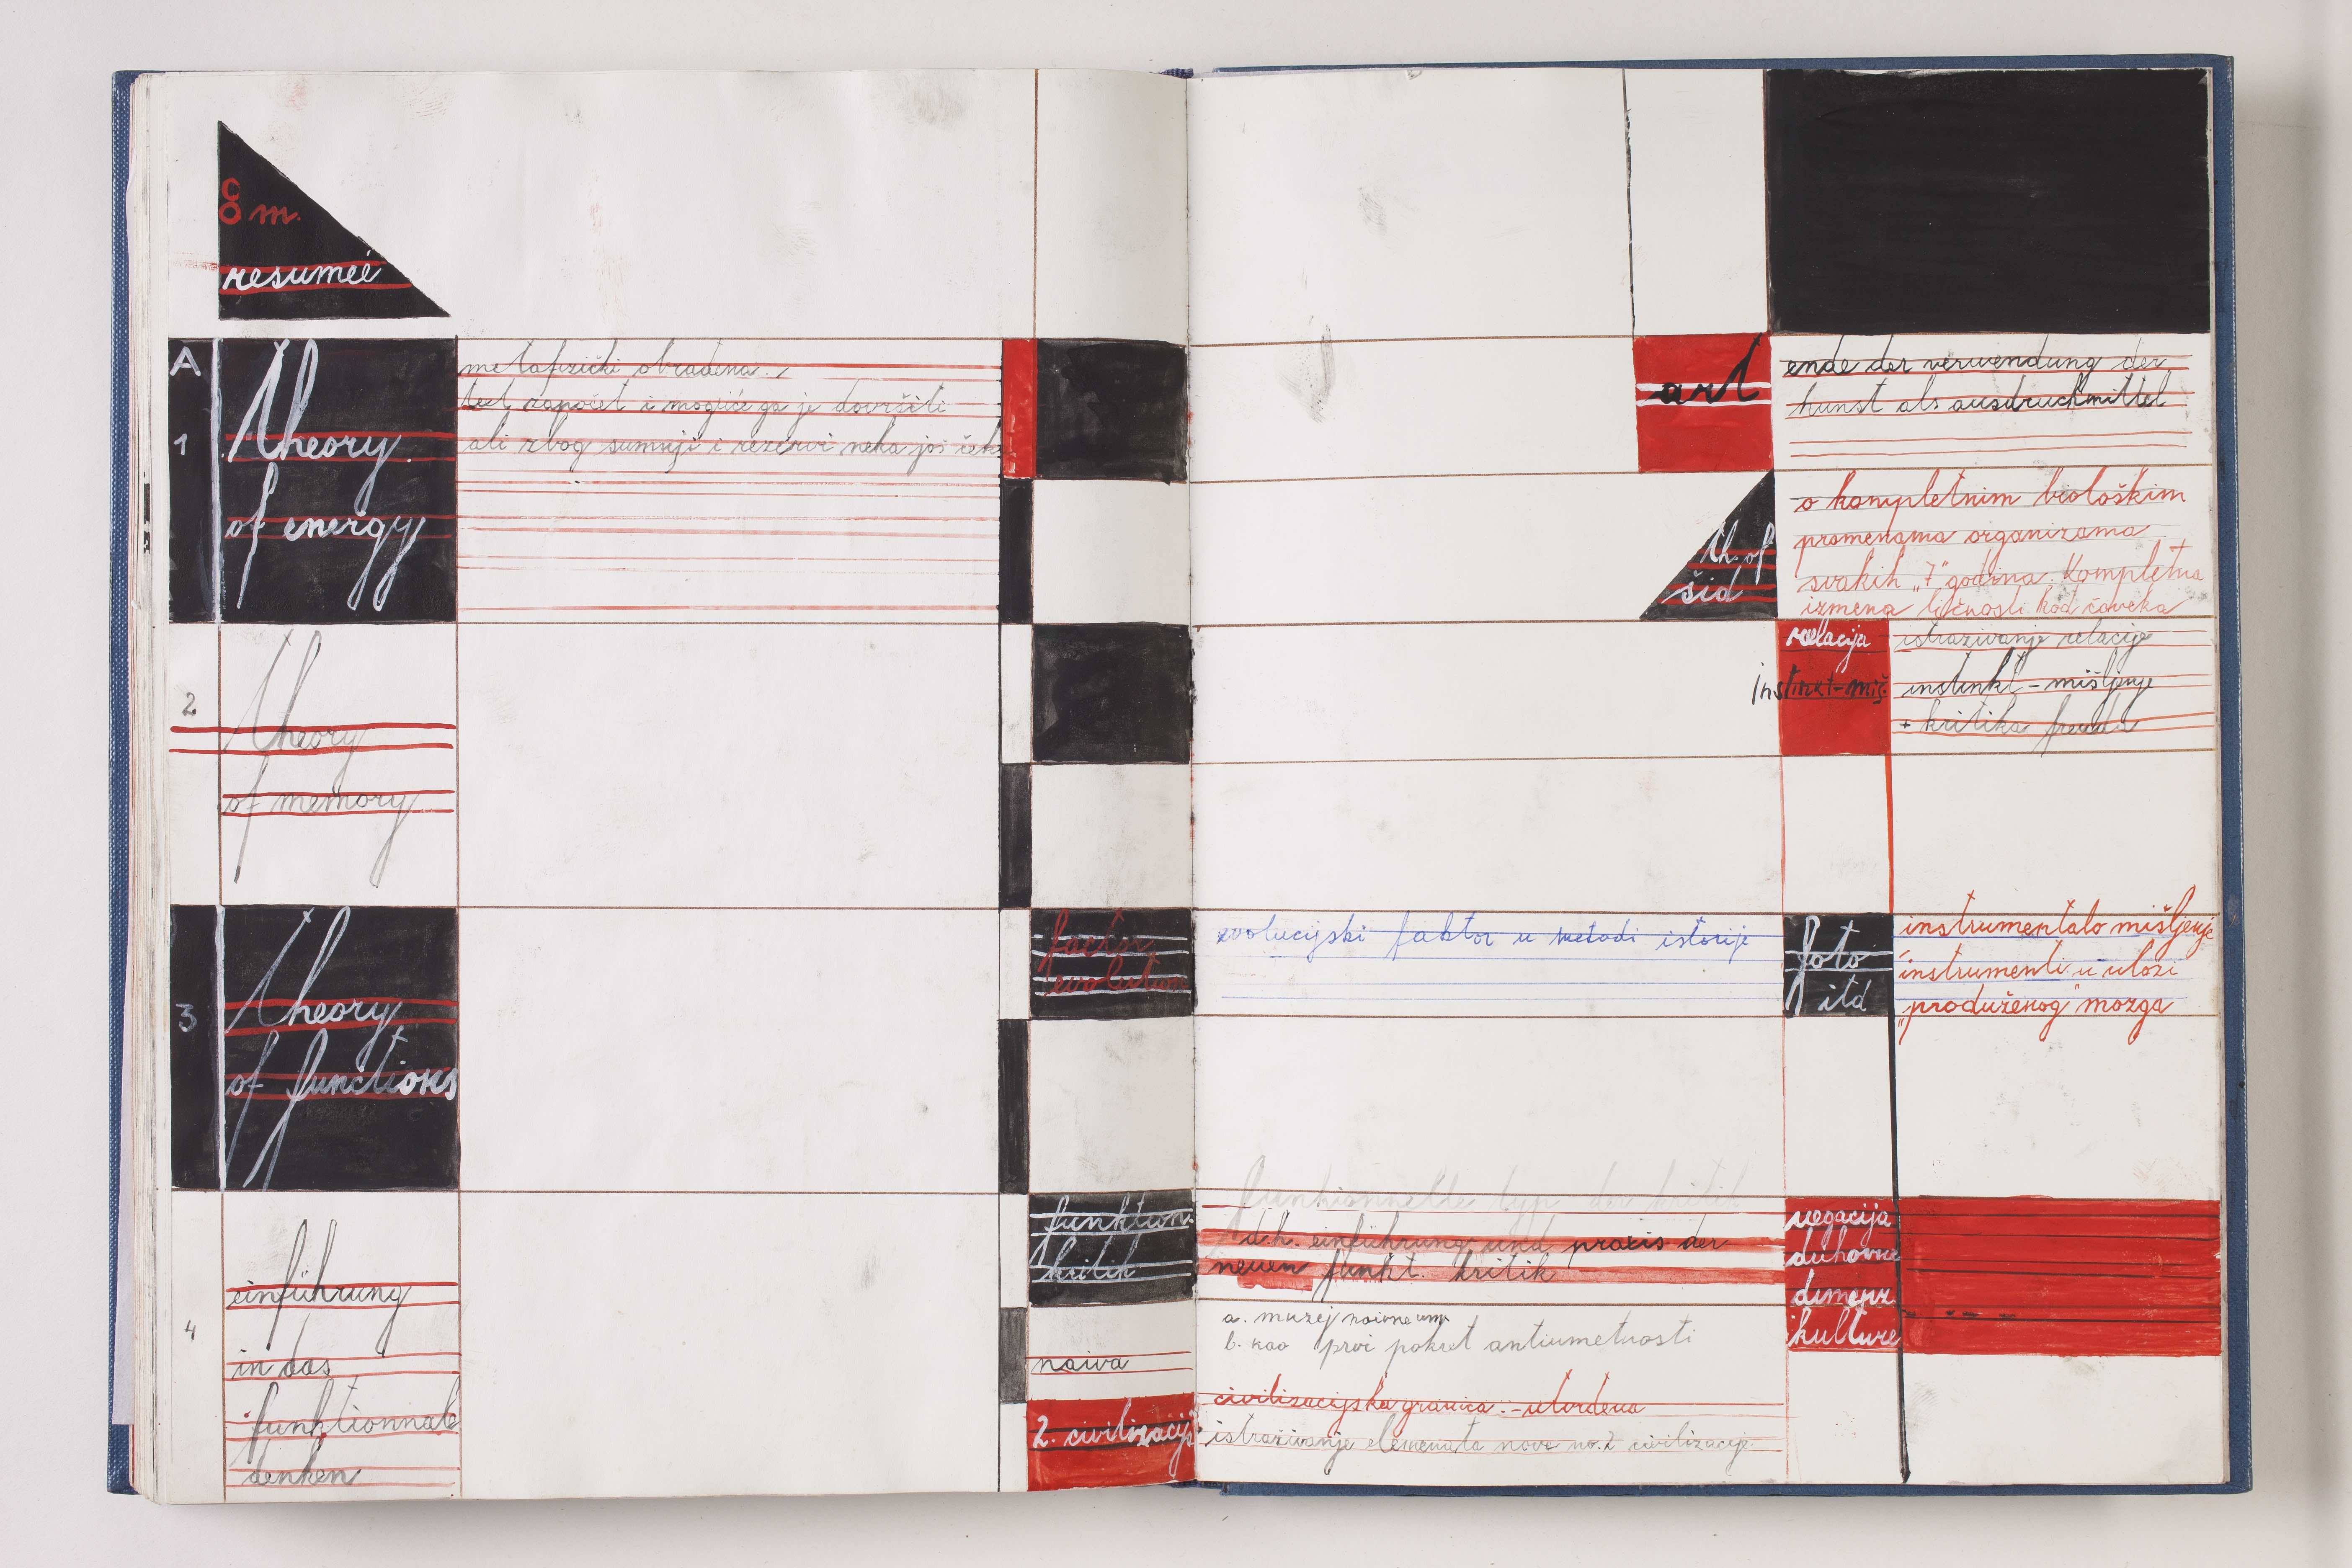 8 m.
resumeé
A
1
theory
of energy
metafizički obrađena.
tek započet i moguće ga je dovršiti
ali zbog sumnji i rezervi neka još čeka
2
theory
of memory
3
theory
of functions
4
einführung
in das
funktionnale
denken
factor
evolution
funktion.
kritik
naiva
2. civilizacija
art
ende der verwendung der
kunst als ausdruckmittel
th. of
šid
o kompletnim biološkim
promenama organizama
svakih „7“ godina. Kompletna
izmena ličnosti kod čoveka
relacija
instinkt-miš.
istraživanje relacije
instinkt - mišljenje
+ kritika freuda
evolucijski faktor u metodi istorije
foto
itd
instrumentalo mišljenje
instrumenti u ulozi
„produženog“ mozga
funktionnelle typ der kritik
d.h. einführung und praxis der
neuen funkt. kritik
a. muzej naivne um.
b. kao prvi pokret antiumetnosti
civilizacijska granica - utvrđena
istraživanje elemenata nove no. 2 civilizacije.
negacija
duhovne
dimenz.
kulture